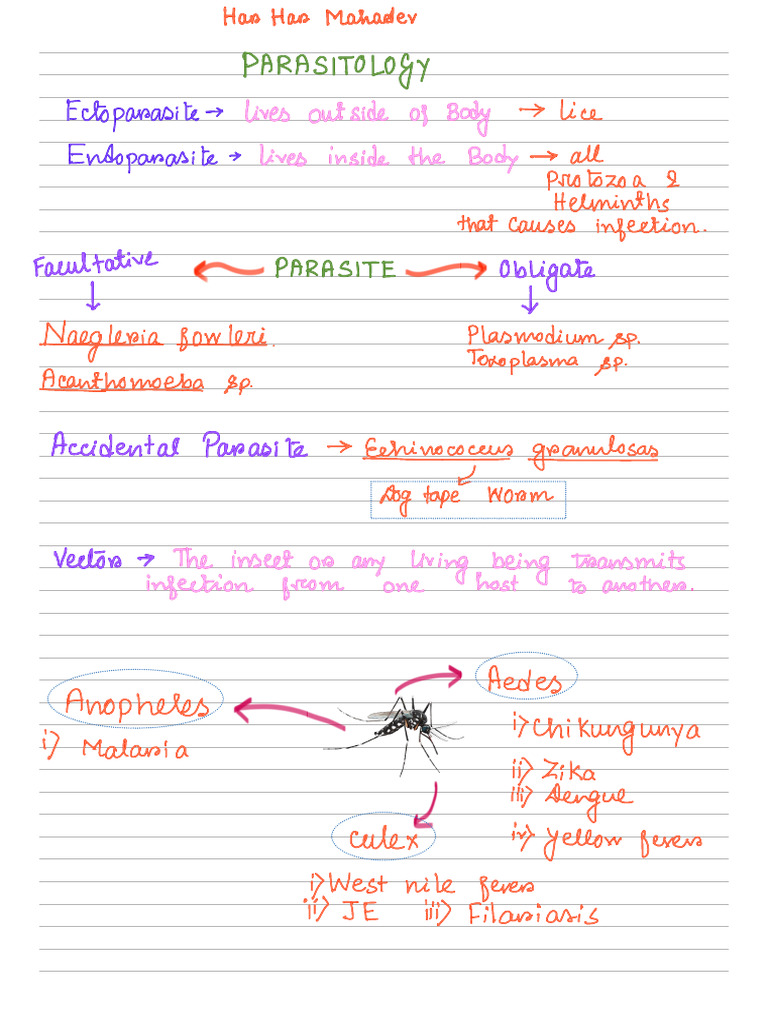 Har Har Mahadev
PARASITOLOGY
Ectoparasite → lives outside of Body → lice
Endoparasite → lives inside the Body → all
Protozoa &
Helminths
that causes infection.
Facultative ← PARASITE → Obligate
↓ ↓
Naegleria fowleri. Plasmodium sp.
Toxoplasma sp.
Acanthomoeba sp.
Accidental Parasite → Echinococcus granulosas
Dog tape Worm
Vector → The insect or any living being transmits
infection from one host to another.
Anopheles
i) Malaria
Aedes
i) Chikungunya
ii) Zika
iii) Dengue
iv) Yellow fever
Culex
i) West nile fever
ii) JE iii) Filariasis